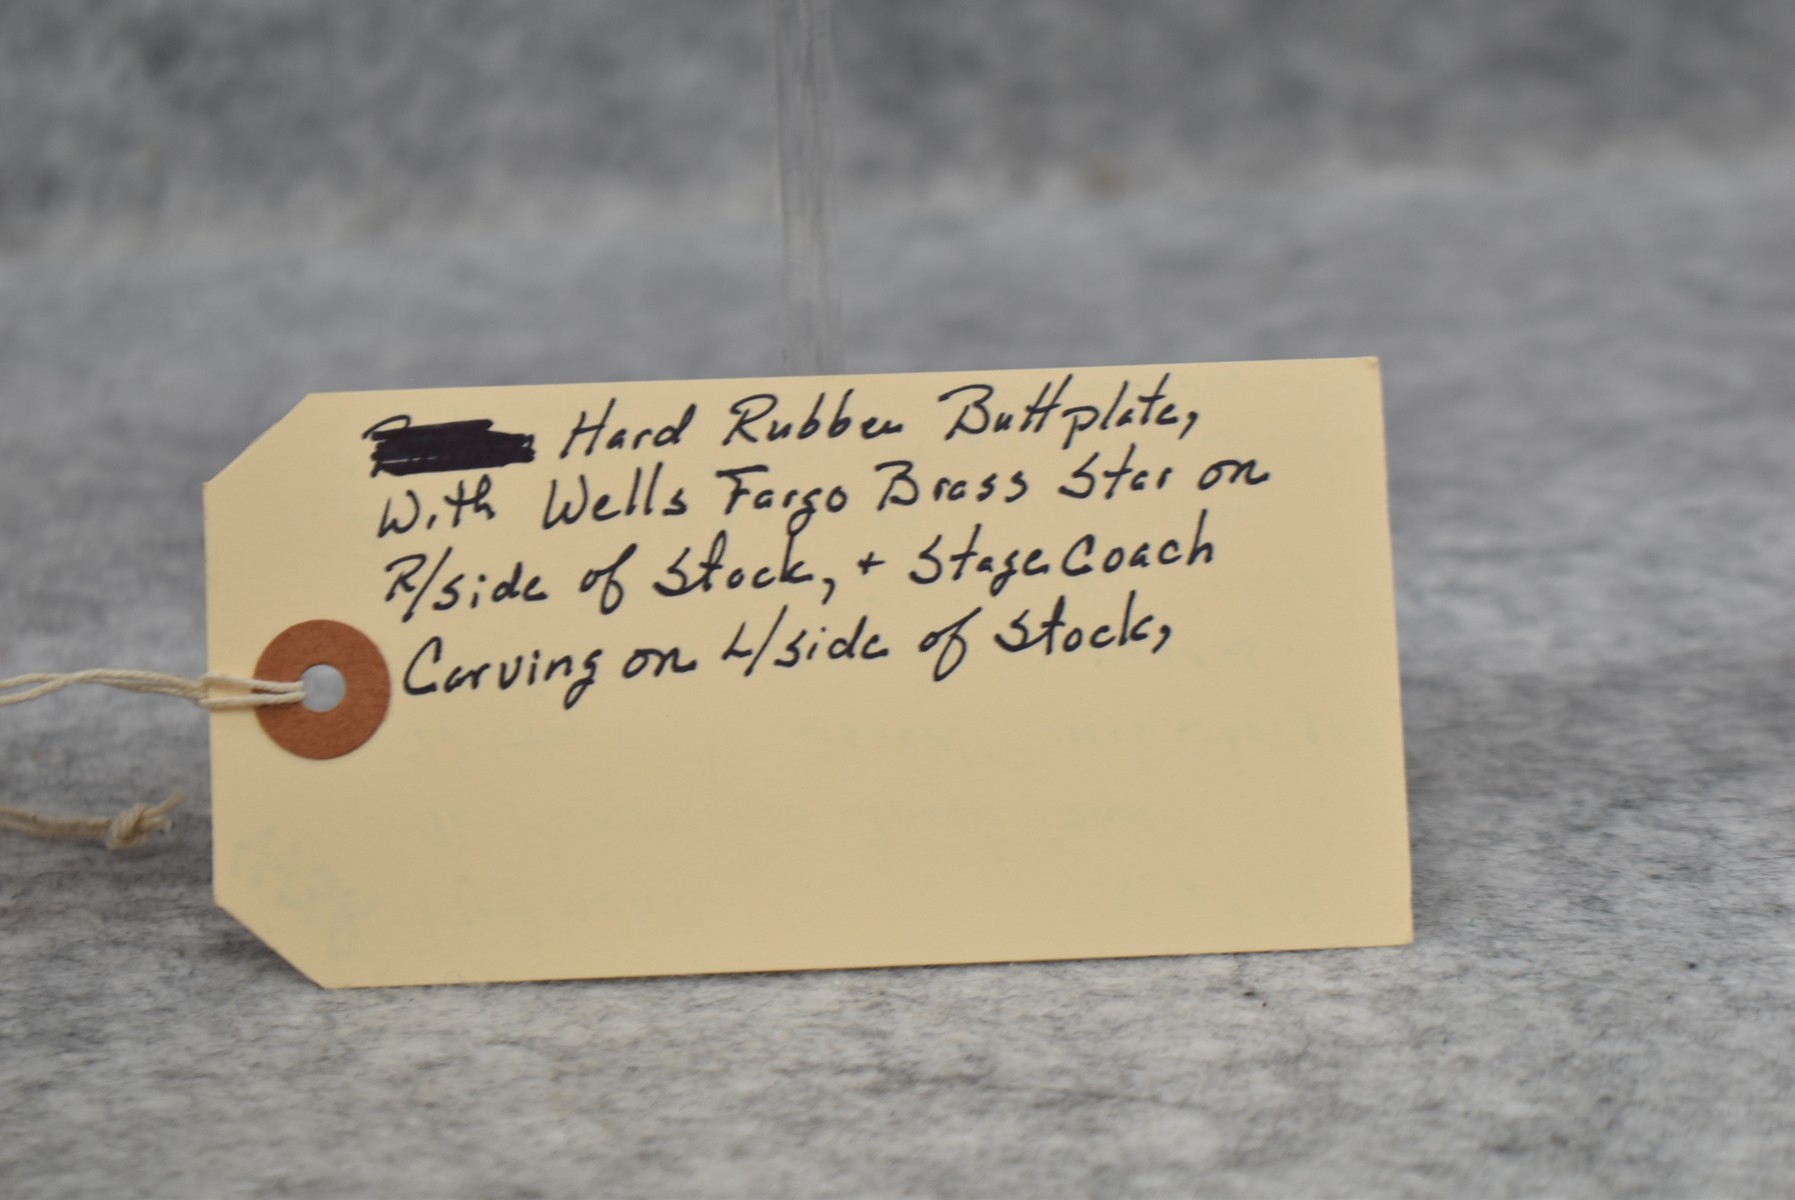 Hard Rubber Buttplate,
With Wells Fargo Brass Star on
R/side of Stock, + StageCoach
Carving on L/side of Stock,